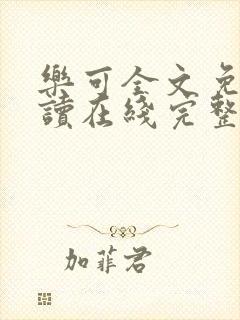 樂可全文免
讀在綫完整
加菲君